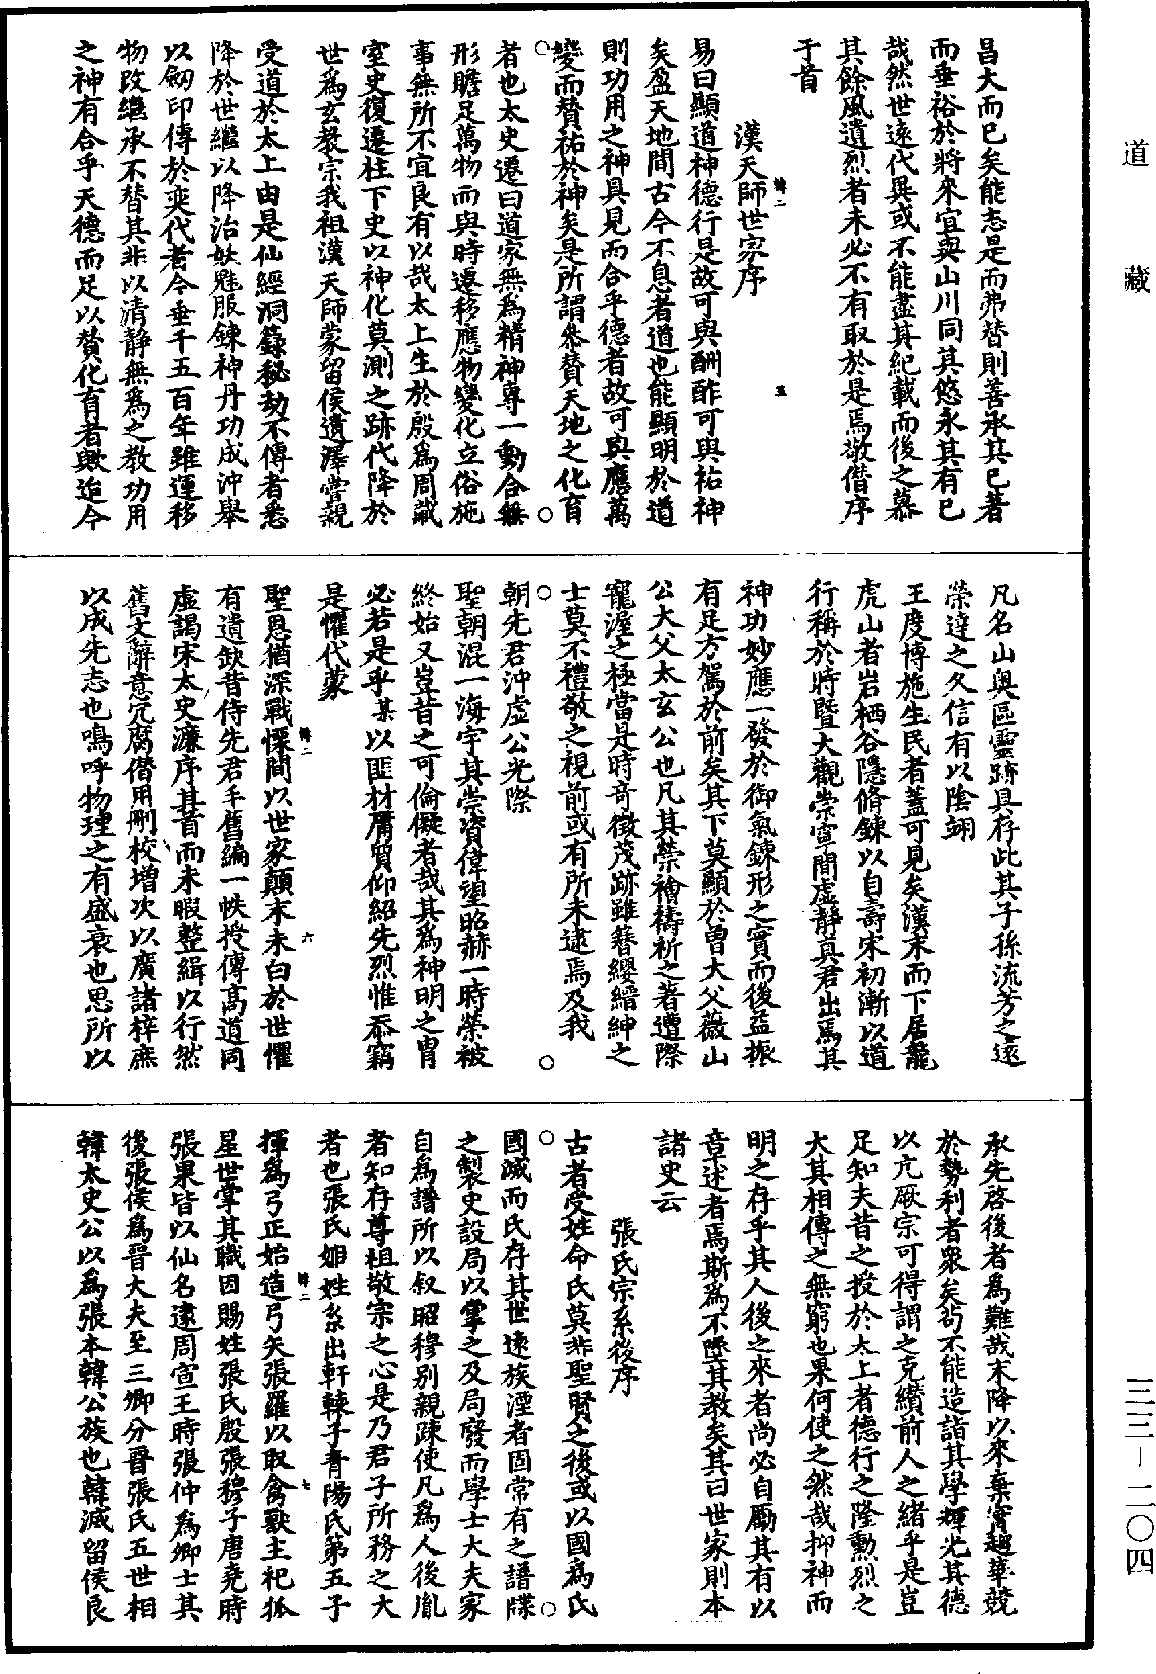 道藏
三三－二〇四
昌大而已矣能志是而弗替則善承其已著
而垂裕於將來宜與山川同其悠永其有已
哉然世遠代異或不能盡其紀載而後之慕
其餘風遺烈者未必不有取於是焉敬僭序
于首
漢天師世家序
韓二
五
易曰顯道神德行是故可與酬酢可與祐神
矣盈天地間古今不息者道也能顯明於道
則功用之神具見而合乎德者故可與應萬
變而贊祐於神矣是所謂叅贊天地之化育
者也太史遷曰道家無為精神專一動合無
形贍足萬物而與時遷移應物變化立俗施
事無所不宜良有以哉太上生於殷為周藏
室史復遷柱下史以神化莫測之跡代降於
世為玄教宗我祖漢天師蒙留侯遺澤嘗親
受道於太上由是仙經洞籙秘劫不傳者悉
降於世繼以降治妖魅服鍊神丹功成沖舉
以劒印傳於奕代者今垂千五百年雖運移
物改繼承不替其非以清靜無為之教功用
之神有合乎天德而足以贊化育者歟迨今
凡名山奥區靈跡具存此其子孫流芳之遠
榮達之久信有以陰翊
王度博施生民者蓋可見矣漢末而下居龍
虎山者岩栖谷隱脩鍊以自壽宋初漸以道
行稱於時暨大觀崇寧間虛靜真君出焉其
神功妙應一發於御氣鍊形之實而後益振
有足方駕於前矣其下莫顯於曾大父薇山
公大父太玄公也凡其禜禬禱祈之著遭際
寵渥之極當是時奇徵茂跡雖簪纓縉紳之
士莫不禮敬之視前或有所未逮焉及我
朝先君沖虛公光際
聖朝混一海宇其崇資偉望昭赫一時榮被
終始又豈昔之可倫儗者哉其為神明之胄
必若是乎某以匪材孱質仰紹先烈惟忝竊
是懼代蒙
聖恩猶深戰慄間以世家顛末未白於世懼
韓二
六
有遺缺昔侍先君手舊編一帙授傳高道同
虛謁宋太史濂序其首而未暇整緝以行然
舊文辭意宂腐僭用刪校增次以廣諸梓庶
以成先志也嗚呼物理之有盛衰也思所以
承先啓後者為難哉末降以來棄實趨華競
於勢利者衆矣茍不能造詣其學輝光其德
以亢厥宗可得謂之克纘前人之緒乎是豈
足知夫昔之授於太上者德行之隆勳烈之
大其相傳之無窮也果何使之然哉抑神而
明之存乎其人後之來者尚必自勵其有以
章述者焉斯為不墜其教矣其曰世家則本
諸史云
張氏宗系後序
古者受姓命氏莫非聖賢之後或以國為氏
國滅而氏存其世遠族湮者固常有之譜牒
之製史設局以掌之及局廢而學士大夫家
自為譜所以叙昭穆別親疎使凡為人後胤
者知存尊祖敬宗之心是乃君子所務之大
者也張氏姬姓系出軒轅子青陽氏第五子
韓二
七
揮為弓正始造弓矢張羅以取禽獸主祀孤
星世掌其職因賜姓張氏殷張穆子唐堯時
張果皆以仙名逮周宣王時張仲為卿士其
後張侯為晉大夫至三卿分晉張氏五世相
韓太史公以為張本韓公族也韓滅留侯良